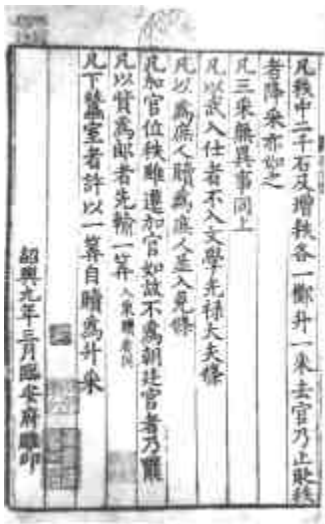 凡秩中二千石及增秩各一擲升一采去官乃止貶秩
者降采亦如之
凡三采無異事同上
凡以武入仕者不入文學光祿大夫條
凡以爲庶人贖爲庶人並入免條
凡加官位秩雖遷加官如故不爲朝廷官者乃罷
凡以貲爲郎者先輸一筭
凡下蠶室者許以一筭自贖爲升采
紹興九年三月臨安府雕印